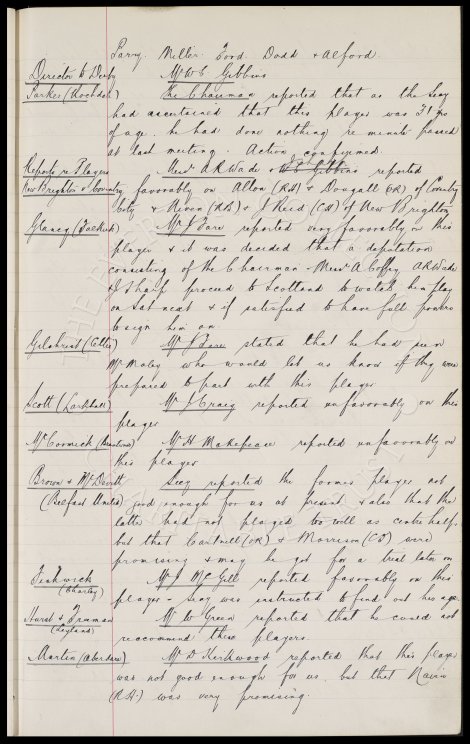 Parry. Miller. Ford. Dodd & Alford.
Director to Derby Mr W C Gibbins
Parker (Rochdale) The Chairman reported that as the Secy
had ascertained that this player was 31 yrs
of age. he had done nothing re minute passed
at last meeting. Action confirmed.
Reports re Players Messrs A R Wade & W C Gibbins reported
New Brighton & Coventry favorably on Allon (RB) & Dougall (OR) of Coventry
City & (RB) & J Reid (CH) of New Brighton
Glancy (Falkirk) Mr J reported very favorably on this
player & it was decided that a deputation
consisting of the Chairman Messrs A Coffey A R Wade
& J Sharp proceed to Scotland to watch him play
on Sat next & if satisfied to have full powers
to sign him on.
Gilchrist (Celtic) Mr J stated that he had seen
Mr Maley who would let us know if they were
prepared to part with this player
Scott (Larkhall) Mr J Craig reported unfavorably on this
player
McCormick Mr H Makepeace reported unfavorably on
this player
Brown & McDevitt Secy reported the former player not
(Belfast United) good enough for us at present & also that the
latter had not played so well as centre half.
but that Cartmell (OR) & Morrison were
promising & may be got for a trial later on
Fishwick Mr J McGill reported favorably on this
(Chorley) player - Secy was instructed to find out his age
Hurst & Truman Mr W Green reported that he could not
(Leyland) reccomend these players
Martin (Aberdeen) Mr D Kirkwood reported that this player
was not good enough for us. but that
(R.H.) was very promising.